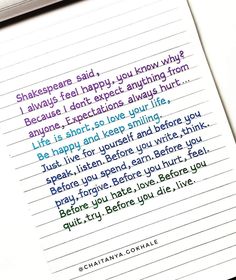 Shakespeare said,
I always feel happy, you know why?
Because I don't expect anything from
anyone, Expectations always hurt...
Life is short, so love your life,
Be happy and keep smiling.
Just live for yourself and before you
speak, listen. Before you write, think.
Before you spend, earn. Before you
pray, forgive. Before you hurt, feel.
Before you hate, love. Before you
quit, try. Before you die, live.
@CHAITANYA.GOKHALE